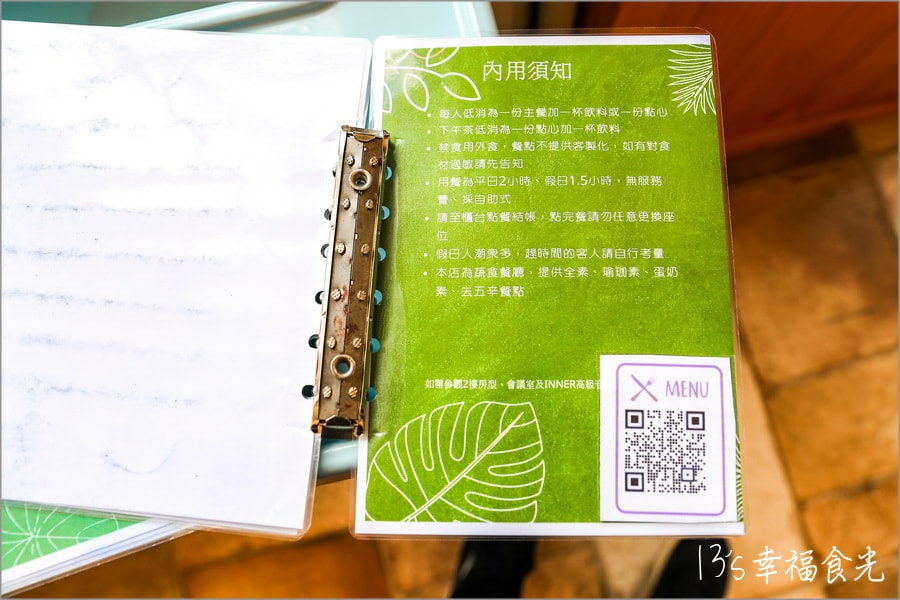 內用須知
• 每人低消為一份主餐加一杯飲料或一份點心
• 下午茶低消為一份點心加一杯飲料
• 禁食用外食，餐點不提供客製化，如有對食
材過敏請先告知
• 用餐為平日2小時，假日1.5小時，無服務
費、採自助式
• 請至櫃台點餐結帳，點完餐請勿任意更換座
位
• 假日人潮眾多，趕時間的客人請自行考量
• 本店為蔬食餐廳、提供全素、瑜珈素、蛋奶
素、去五辛餐點
如需參觀2樓房型、會議室及INNER高級音
MENU
13's幸福食光